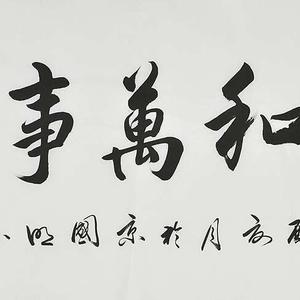 和萬事
月於京國